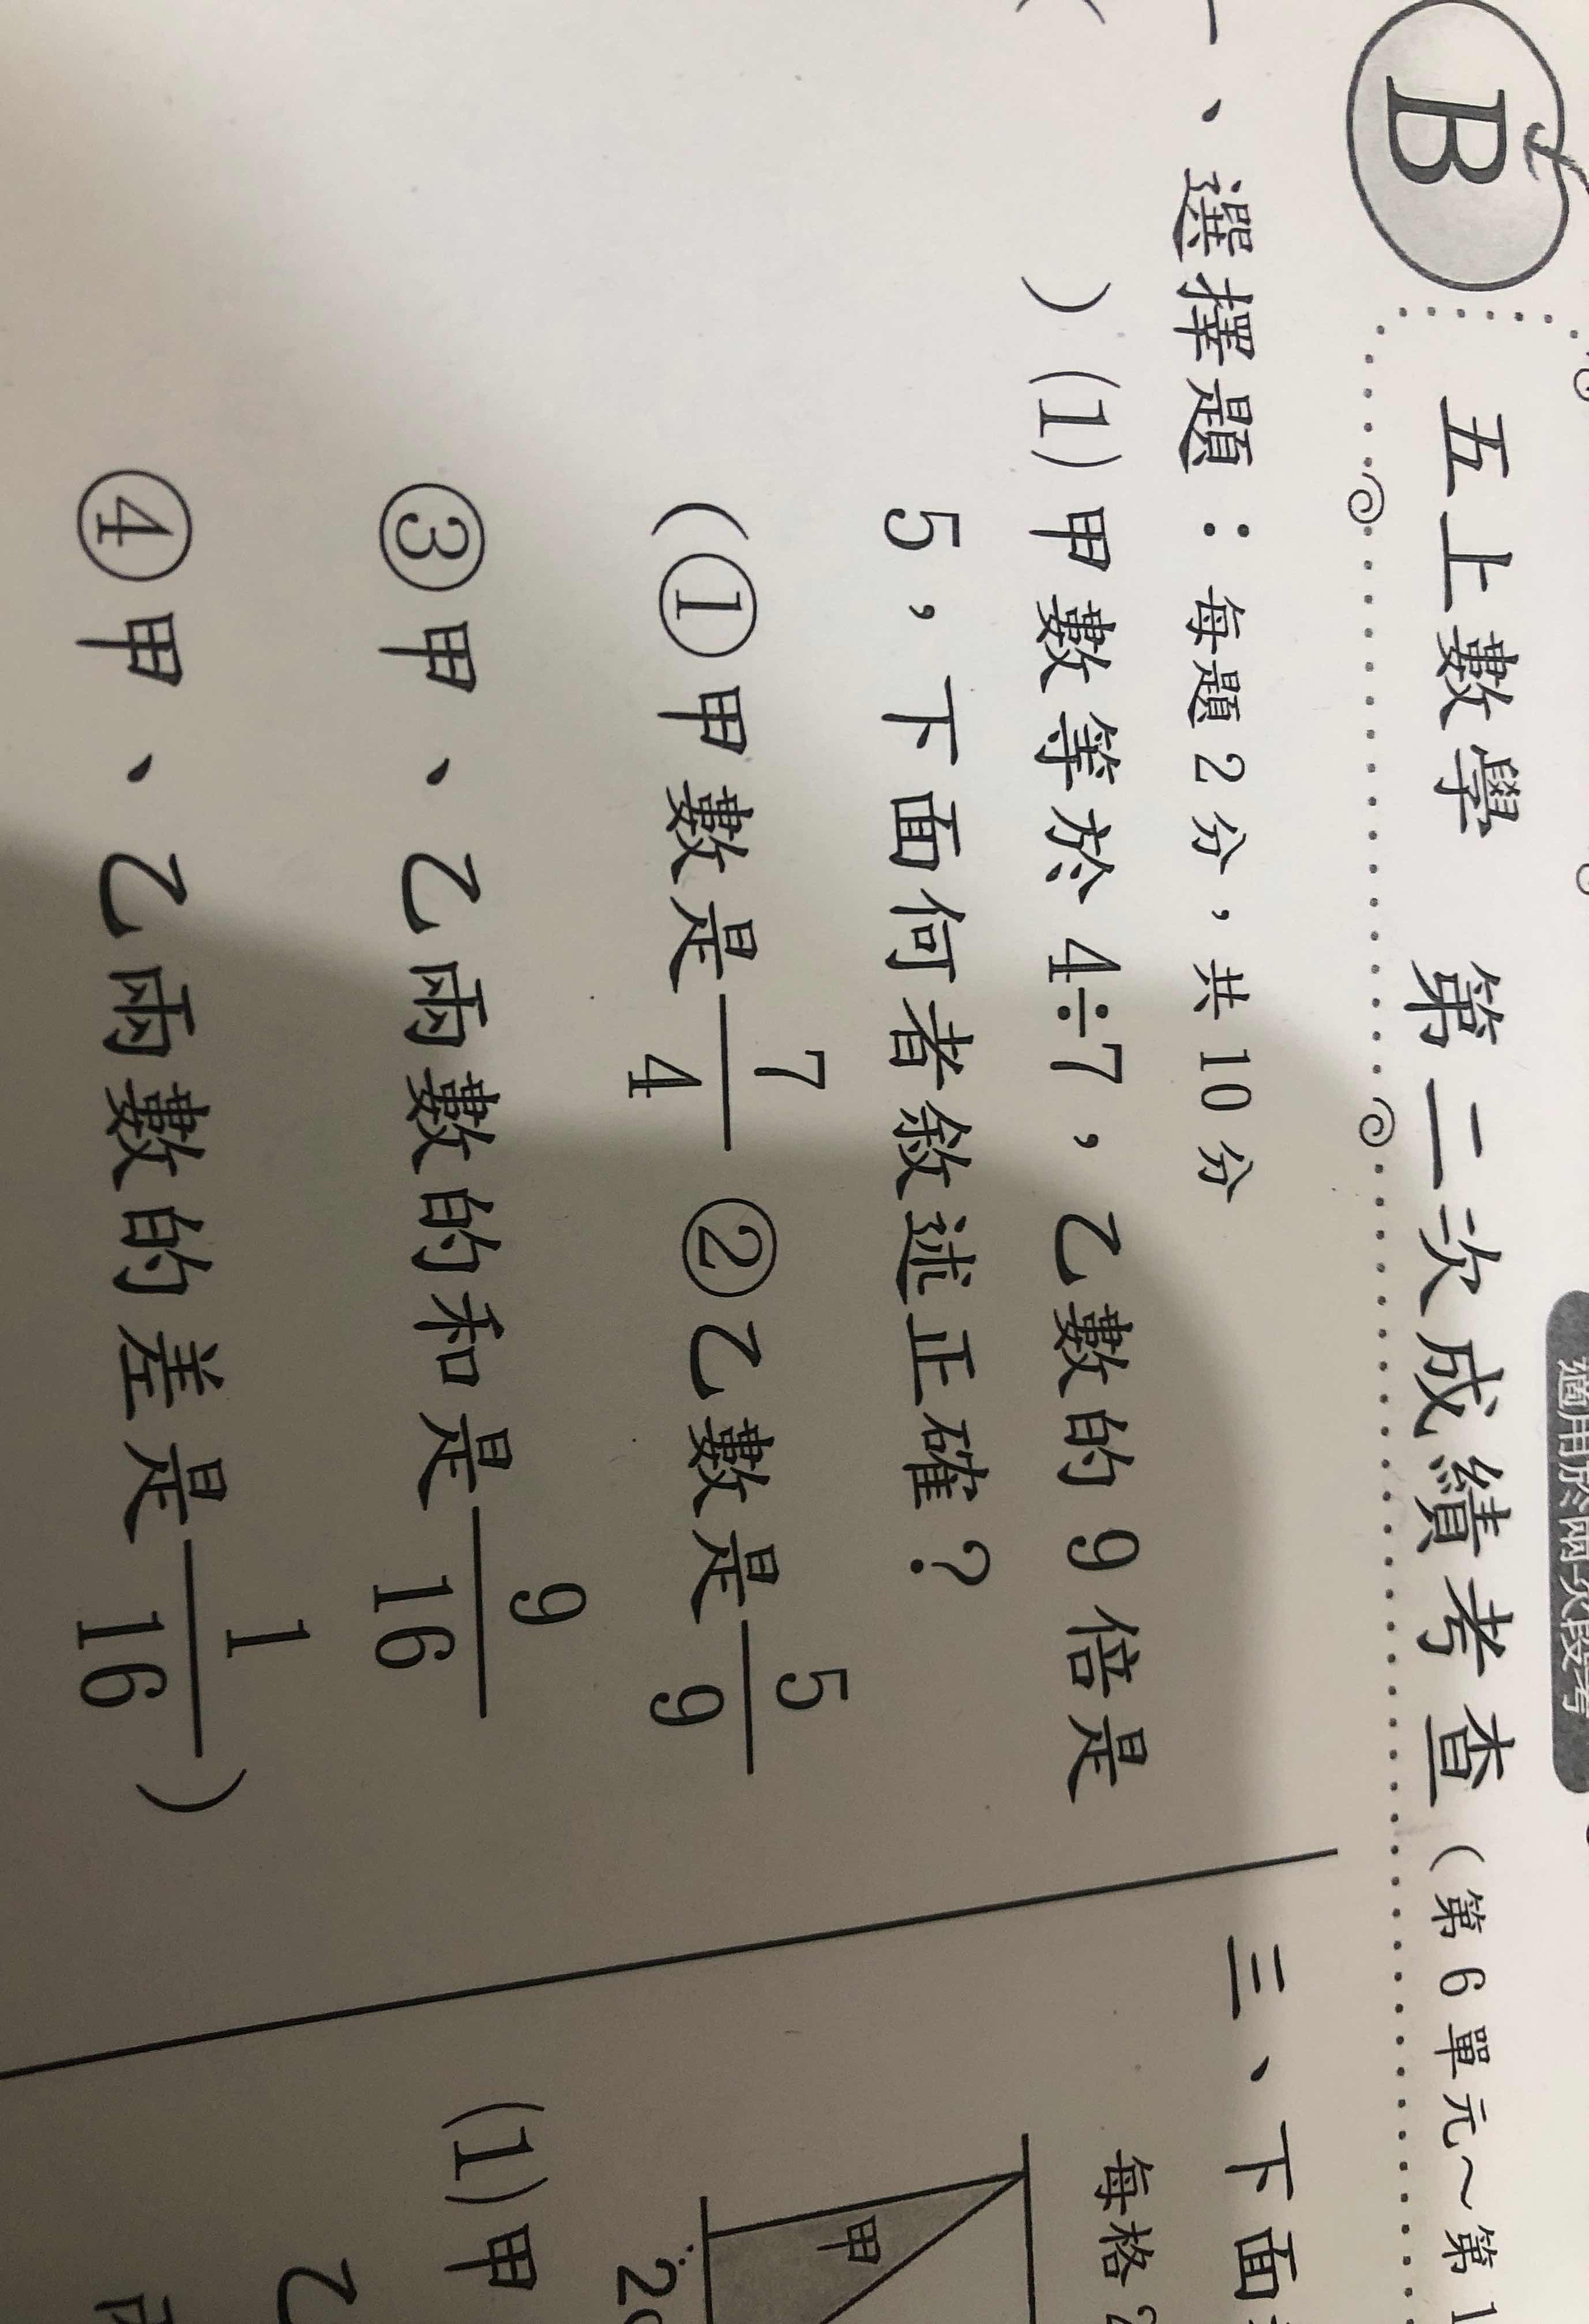 B
適用於兩次段考
五上數學 第二次成績考查(第6單元~第1
一、選擇題:每題2分,共10分
( )(1)甲數等於4÷7,乙數的9倍是
5,下面何者敘述正確?
(①甲數是7/4 ②乙數是5/9
③甲、乙兩數的和是9/16
④甲、乙兩數的差是1/16)
三、下面
每格2
甲
20
(1)甲
乙